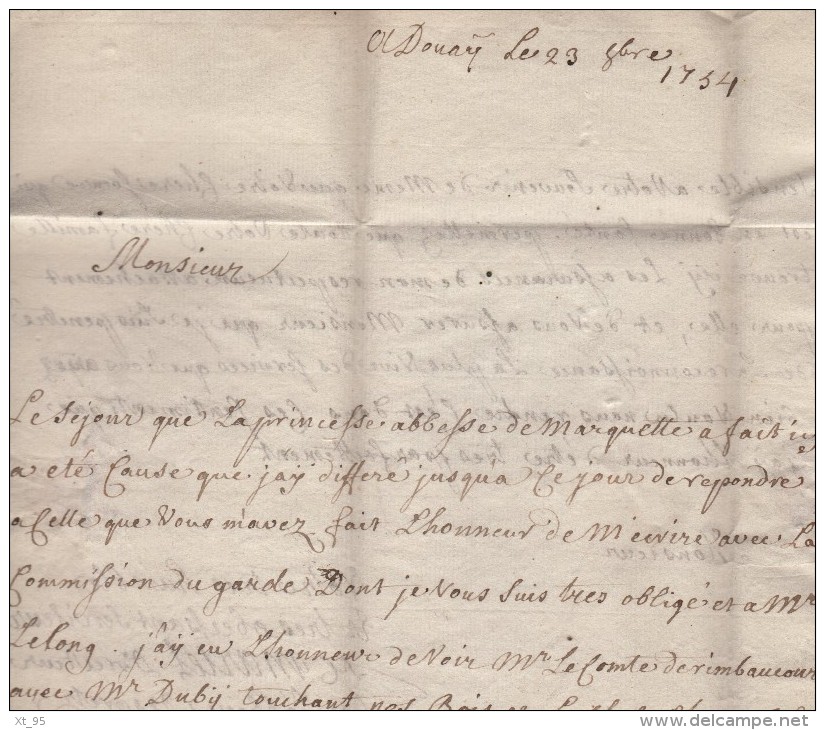 A Douaÿ Le 23 9bre
1754
Monsieur
Le séjour que La princesse abbesse de Marquette a fait icy
a eté Cause que j'aÿ differe jusqua Ce jour de repondre
a Celle que Vous m'avez fait Lhonneur de M'ecrire avec La
Commission du garde Dont je Vous suis tres obligé et a Mr
Lelong. j'aÿ eu Lhonneur de Voir Mr Le Comte de rimbaucour
avec Mr Dubÿ touchant nos Bois
Xt_95
www.delcampe.net